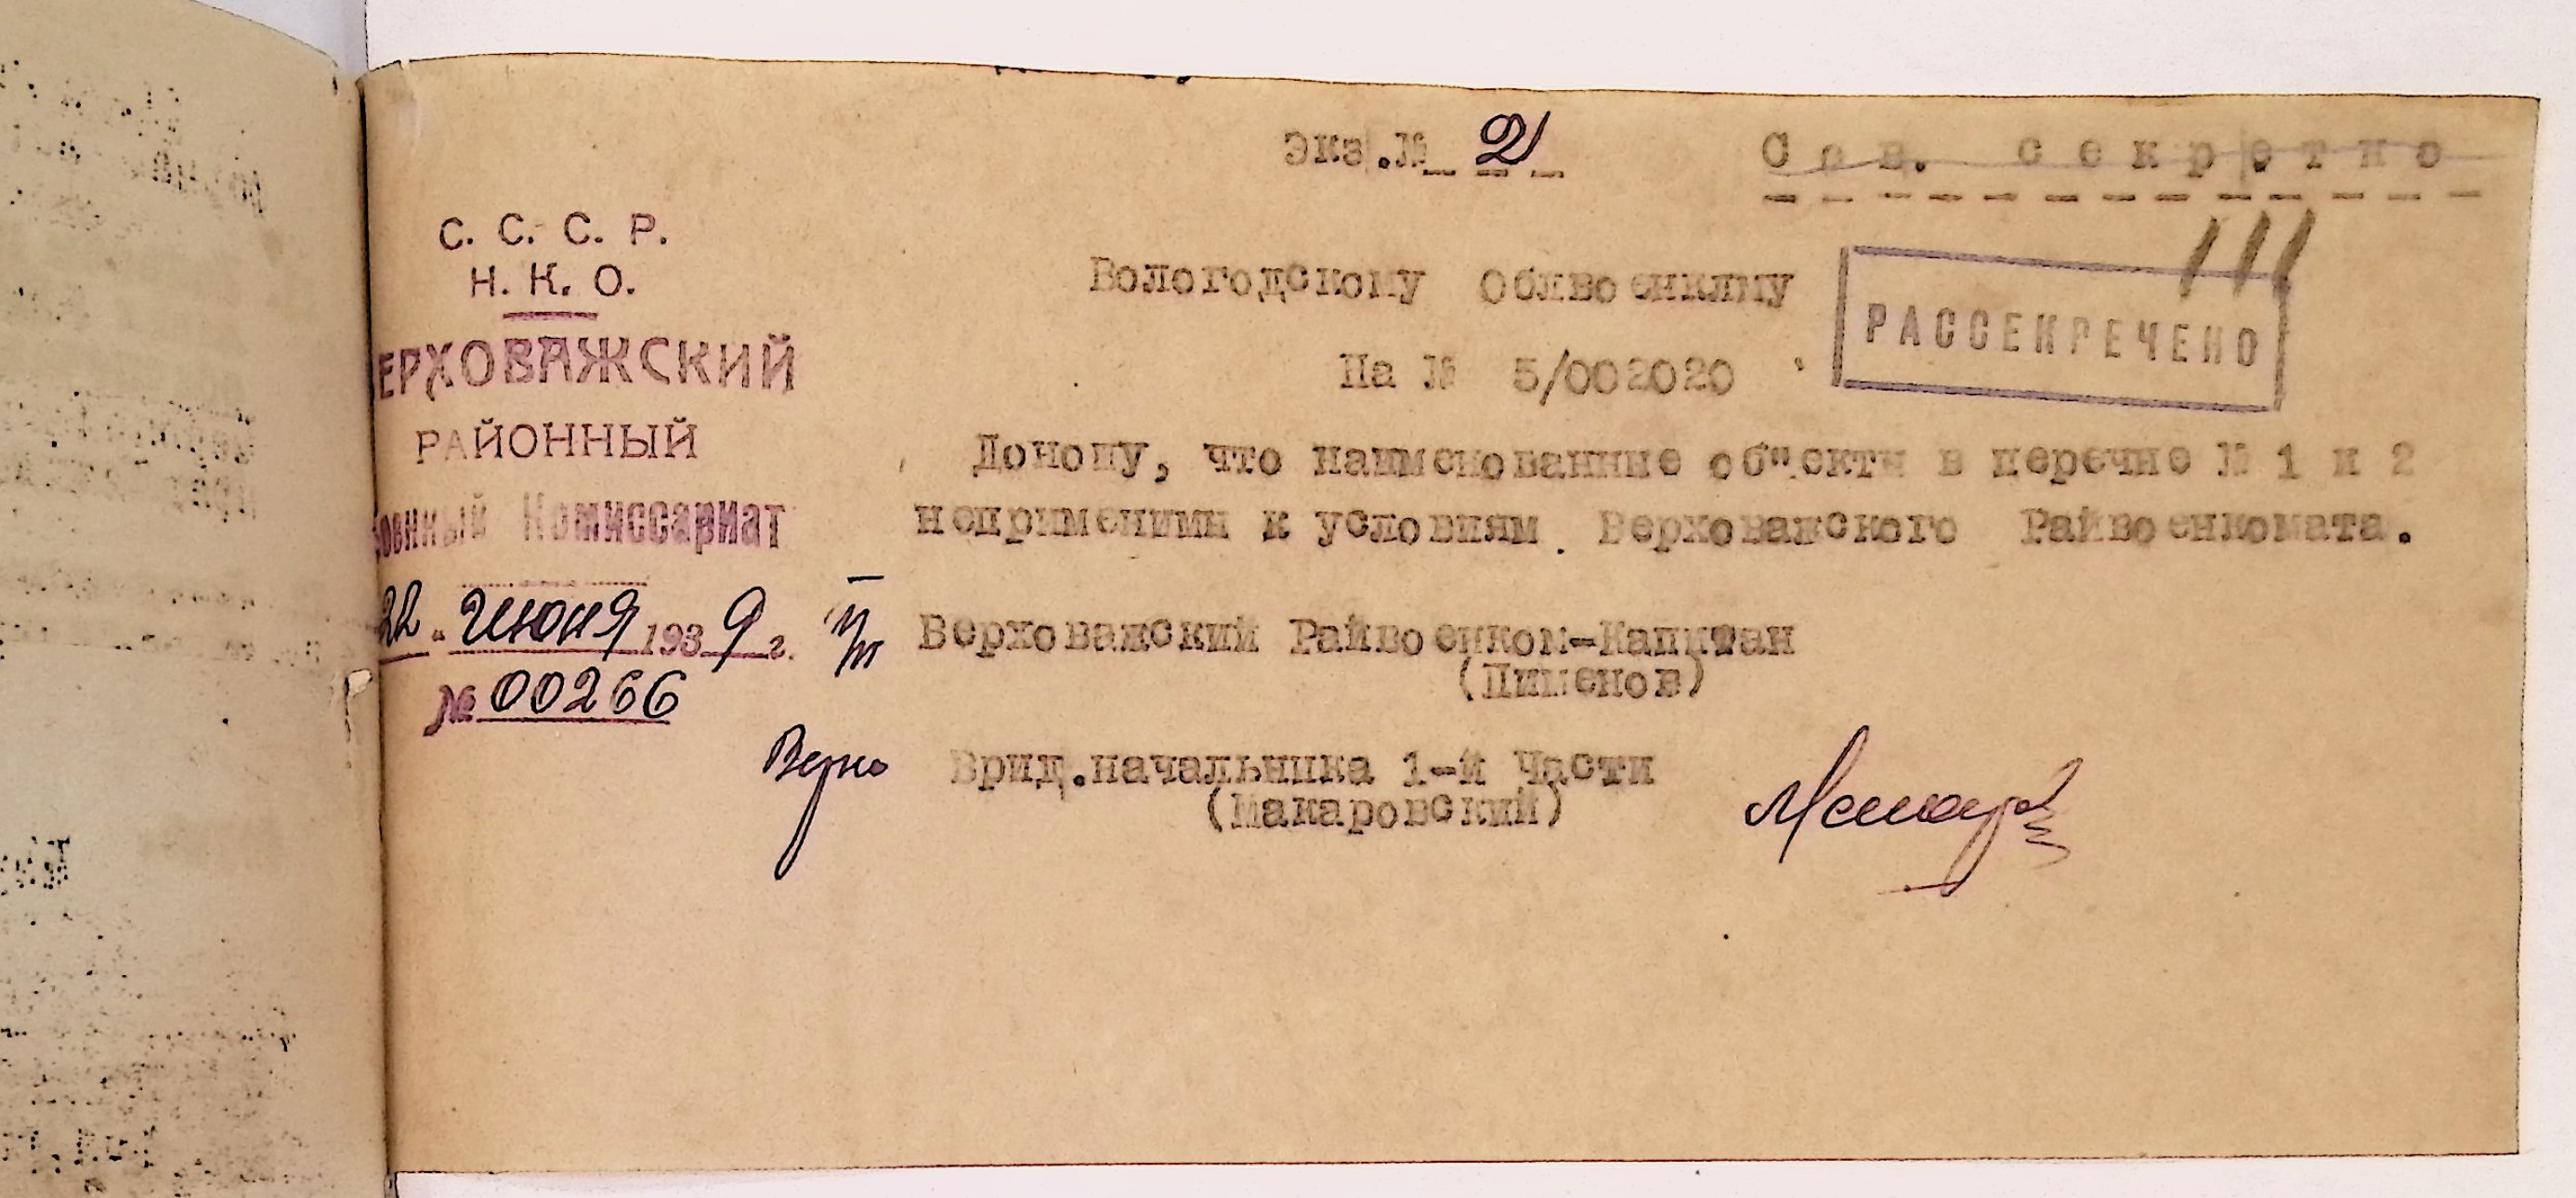 Экз.№ 2
Сов. секретно
С. С. С. Р.
Н. К. О.
ЕРХОВАЖСКИЙ
РАЙОННЫЙ
оенный Комиссариат
22 " июня 1939 г.
№ 00266
Вологодскому Облвоенкому
111
РАССЕКРЕЧЕНО
На № 5/002020
Доношу, что наименованные об"екты в перечне № 1 и 2
неприменимы к условиям Верховажского Райвоенкомата.
п/п Верховажский Райвоенком-Капитан
(Пименов)
Верно Врид.начальника 1-й Части
(Макаровский)